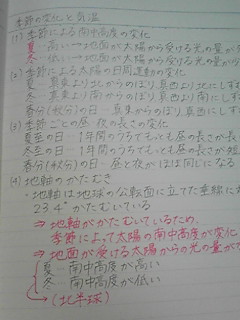 季節の変化と気温
(1) 季節による南中高度の変化
夏…高い→地面が太陽から受ける光の量が
冬…低い→地面が太陽から受ける光の量が
(2) 季節による太陽の日周運動の変化
夏…真東より北からのぼり、真西より北にしず
冬…真東より南からのぼり、真西より南にしず
春分(秋分)の日…真東からのぼり、真西にしず
(3) 季節ごとの昼・夜の長さの変化
夏至の日…1年間のうちでもっとも昼の長さが長
冬至の日…1年間のうちでもっとも昼の長さが短
春分(秋分)の日…昼と夜がほぼ同じになる
(4) 地軸のかたむき
・地軸は地球の公転面に立てた垂線に対
23.4°かたむいている
⇒地軸がかたむいているため、
季節によって太陽の南中高度が変化
⇒地面が受ける太陽からの光の量が
夏…南中高度が高い
冬…南中高度が低い
(北半球)